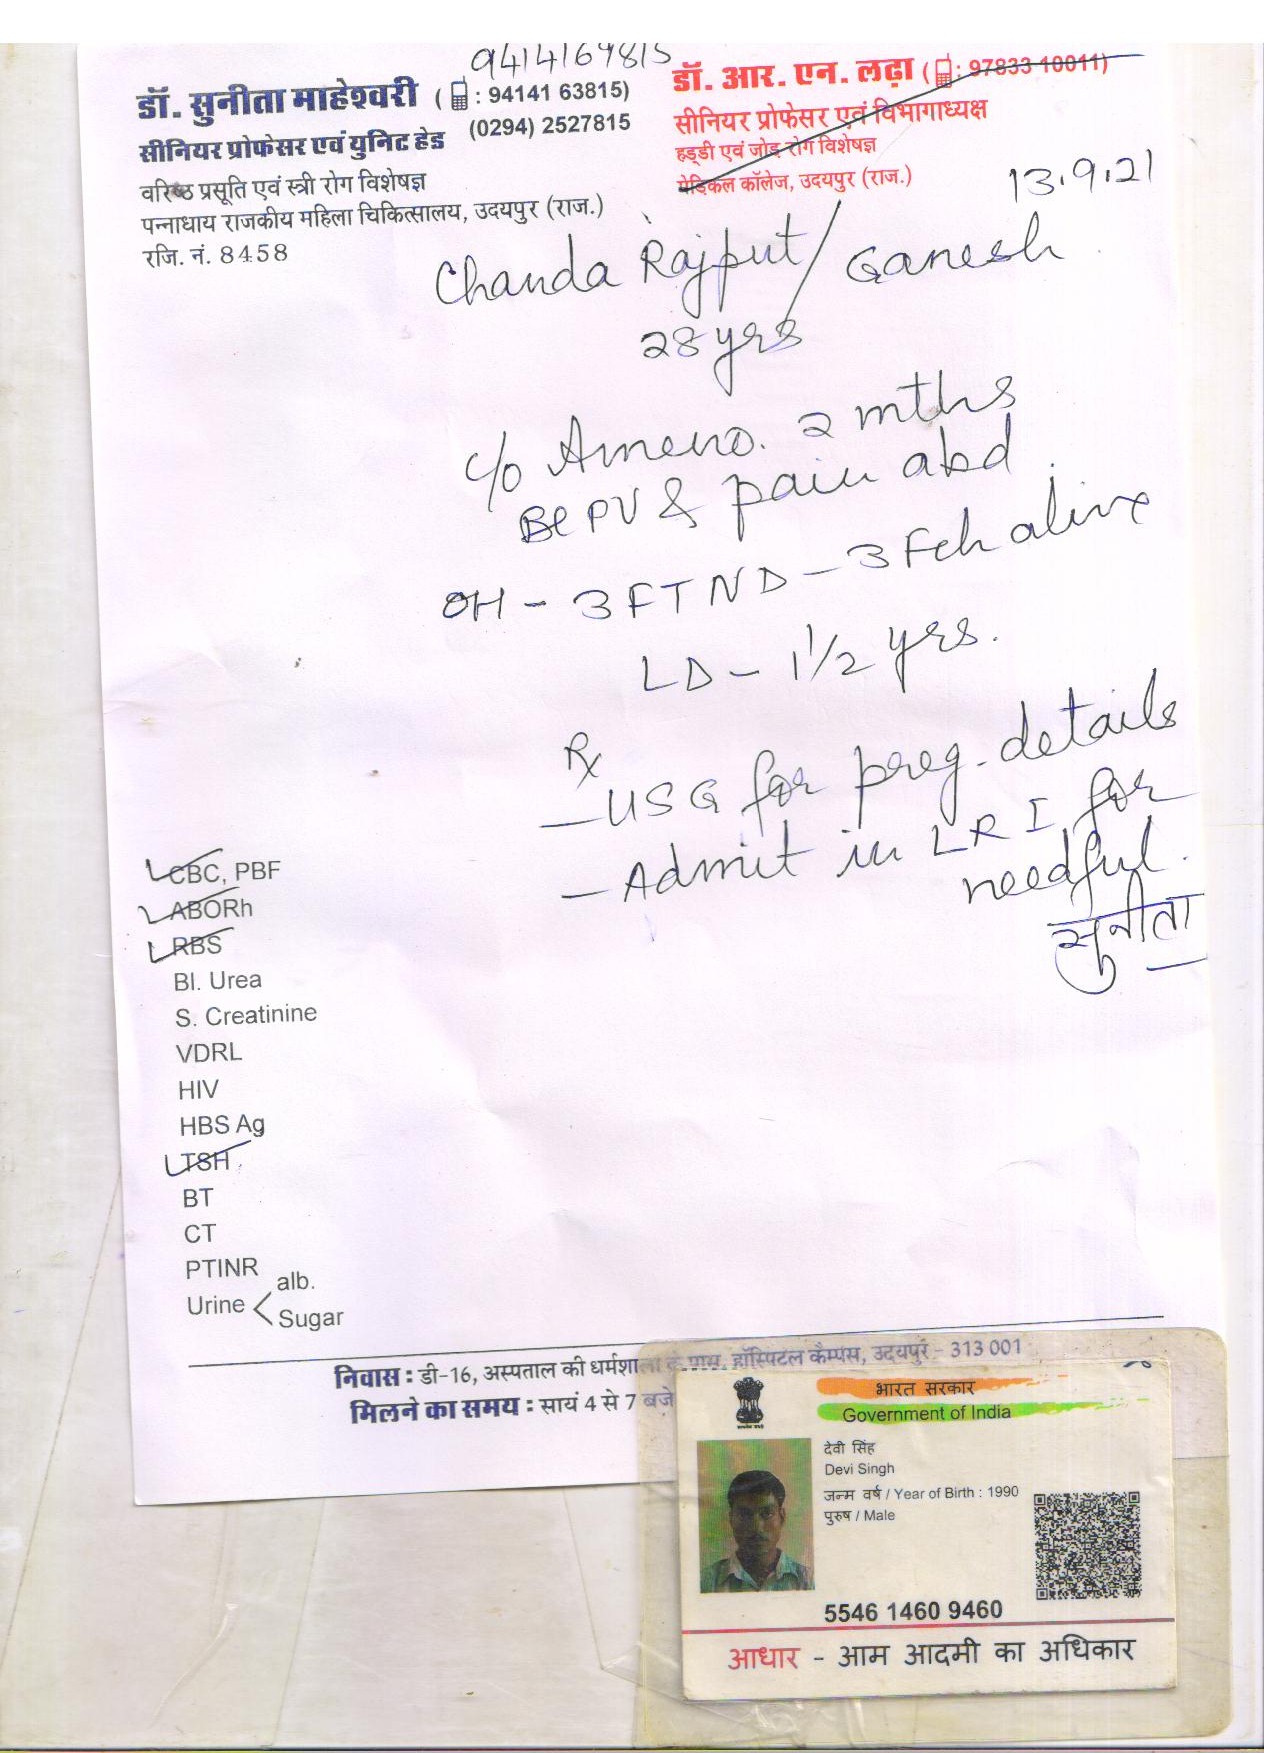 9414169815
डॉ. सुनीता माहेश्वरी ( : 94141 63815)
(0294) 2527815
सीनियर प्रोफेसर एवं युनिट हेड
वरिष्ठ प्रसूति एवं स्त्री रोग विशेषज्ञ
पन्नाधाय राजकीय महिला चिकित्सालय, उदयपुर (राज.)
रजि. नं. 8458
डॉ. आर. एन. लढ़ा ( : 97833 10011)
सीनियर प्रोफेसर एवं विभागाध्यक्ष
हड्डी एवं जोड़ रोग विशेषज्ञ
मेडिकल कॉलेज, उदयपुर (राज.)
13.9.21
Chanda Rajput / Ganesh
28 yrs
c/o Ameno. 2 mths
Bl PV & pain abd
OH - 3 FTND - 3 Fch alive
LD - 1 1/2 yrs.
Rx
- USG for preg. details
- Admit in LRI for
needful.
सुनीता
CBC, PBF
ABORh
RBS
Bl. Urea
S. Creatinine
VDRL
HIV
HBS Ag
TSH
BT
CT
PTINR
Urine < alb.
Sugar
निवास : डी-16, अस्पताल की धर्मशाला के पास, हॉस्पिटल कैम्पस, उदयपुर - 313 001
मिलने का समय : सायं 4 से 7 बजे
भारत सरकार
Government of India
देवी सिंह
Devi Singh
जन्म वर्ष / Year of Birth : 1990
पुरुष / Male
5546 1460 9460
आधार - आम आदमी का अधिकार